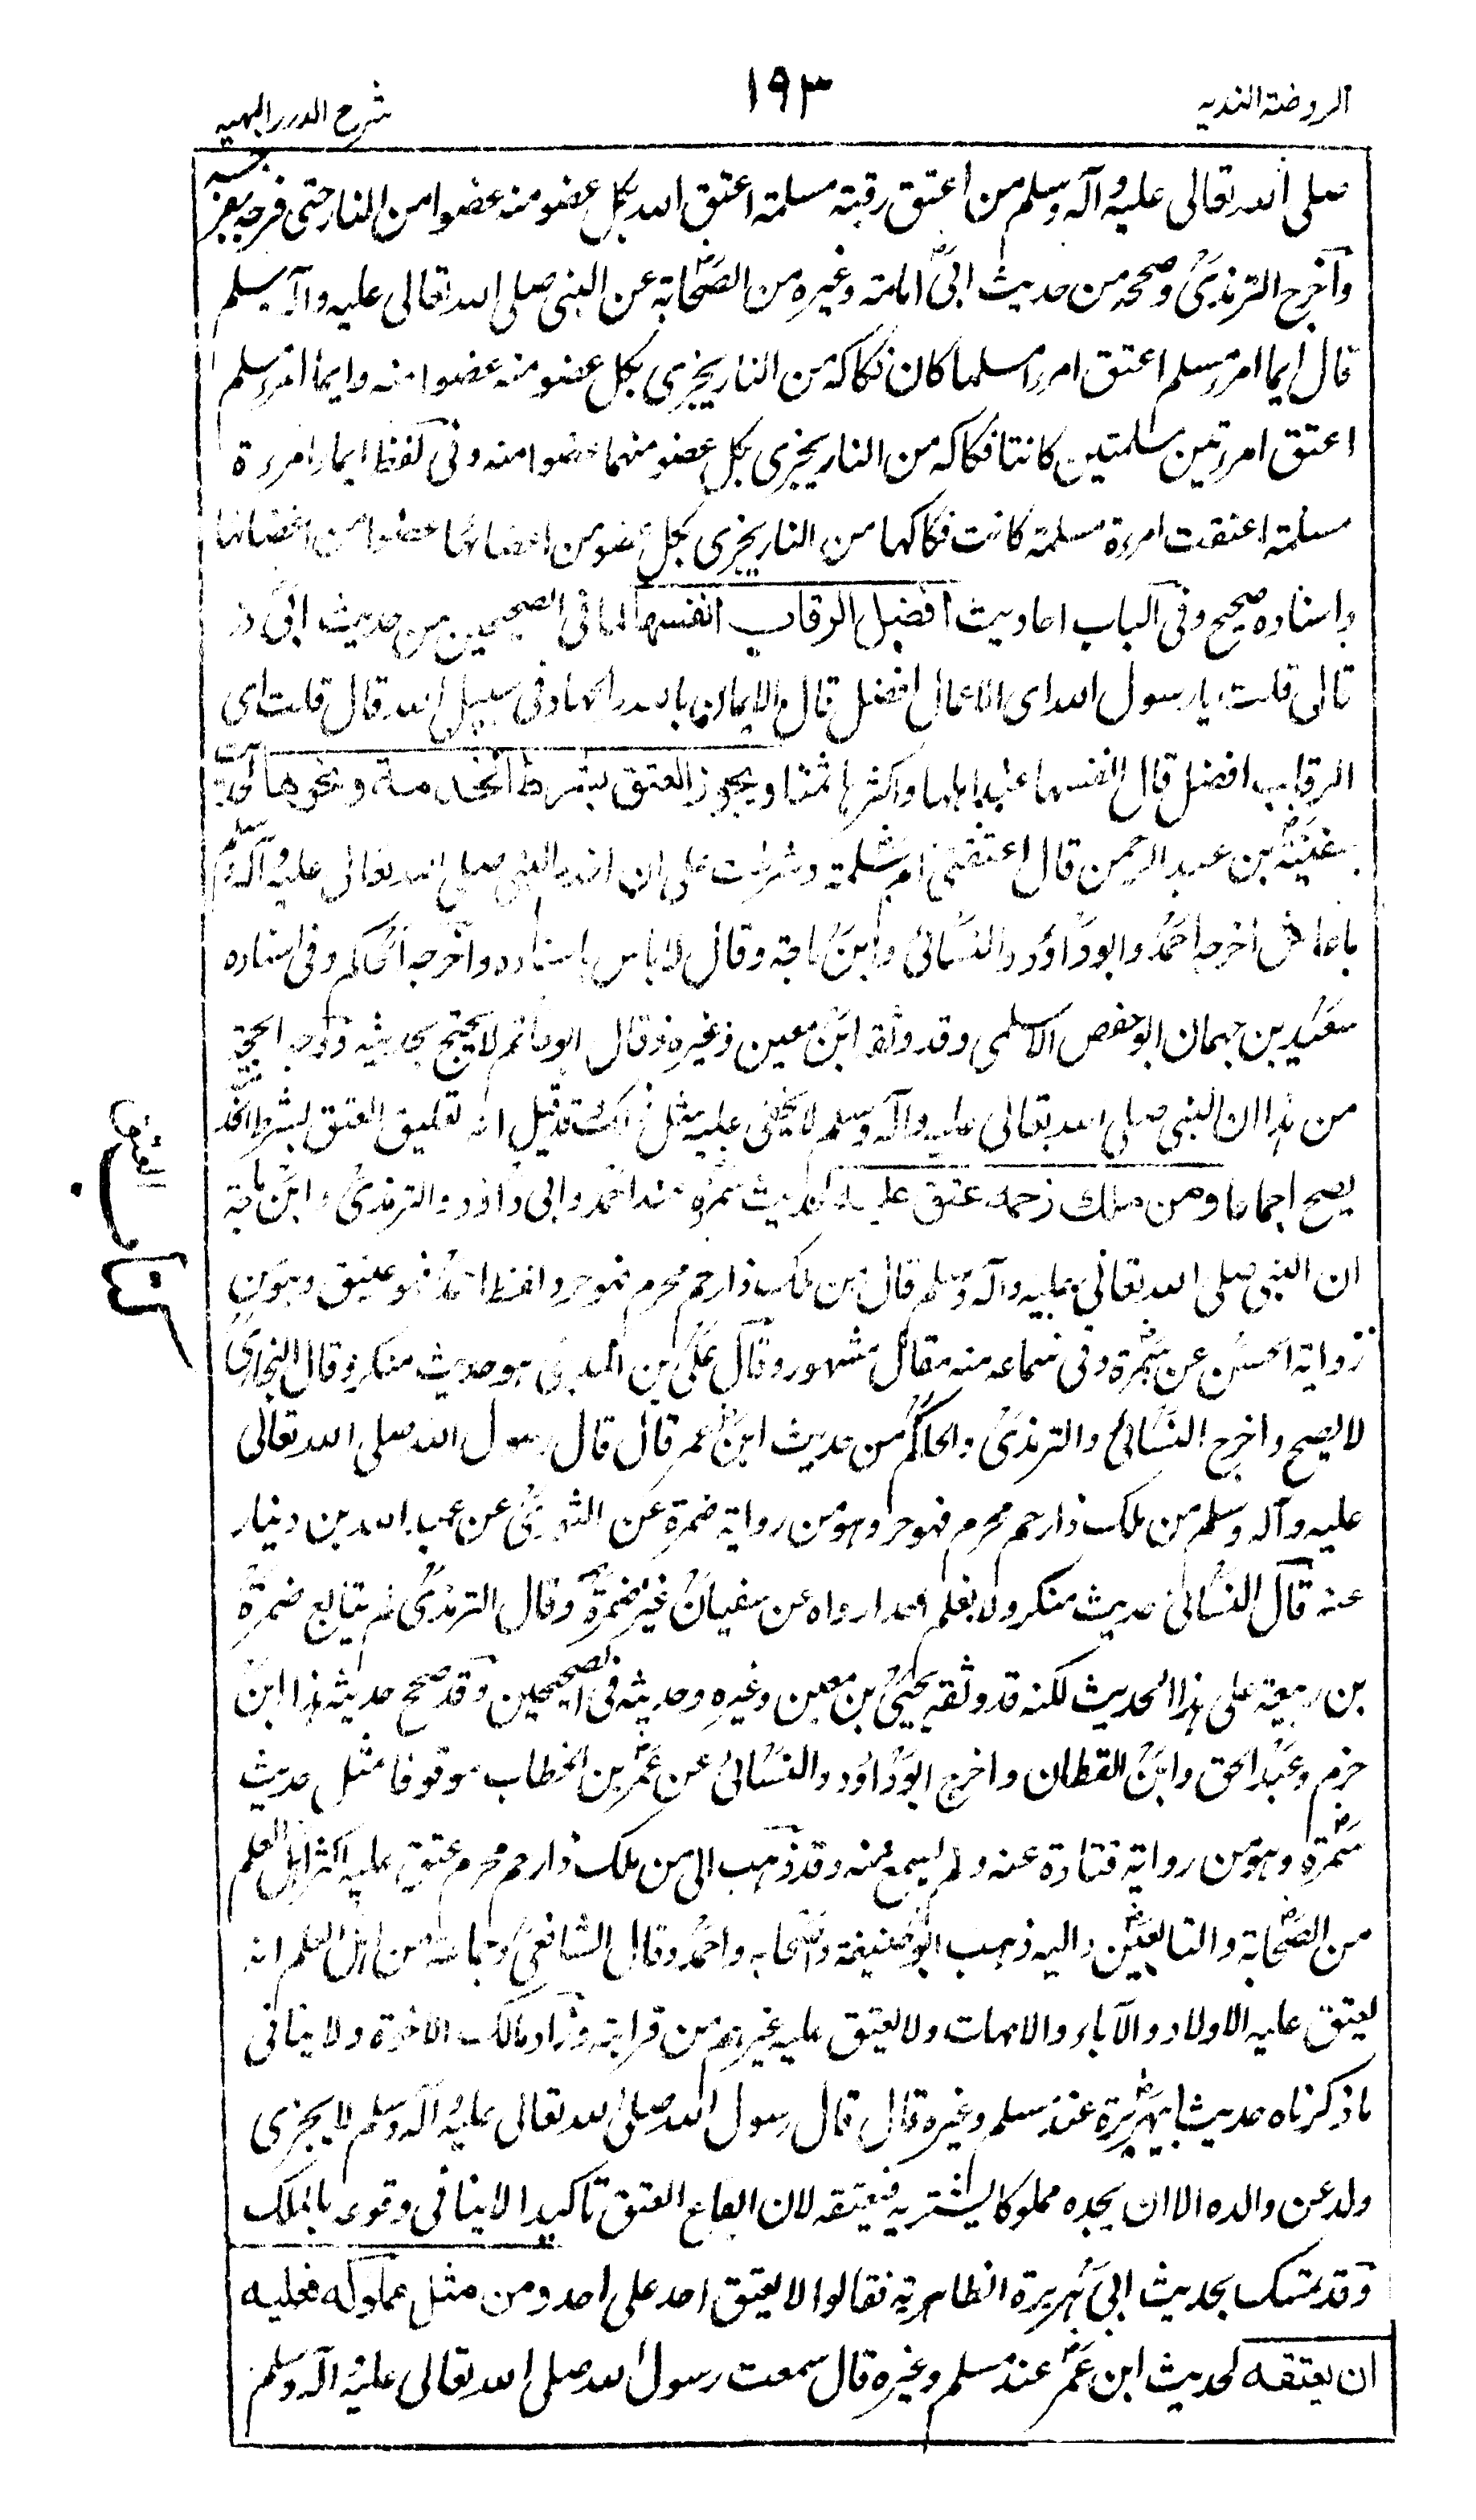 الروضة الندیہ
١٩٣
شرح الدرر البهیہ
صلی اللہ تعالی علیہ وآلہ وسلم من اعتق رقبتہ مسلمتہ اعتق اللہ بکل عضو منہ عضوا من النار حتی فرجہ بفرجہ
وآخرج الترمذی وصححہ من حدیث ابی امامتہ وغیرہ من الصحابۃ عن النبی صلی اللہ تعالی علیہ وآلہ وسلم
قال ایما امرء مسلم اعتق امرءا مسلما کان فکاکہ من النار یجزی بکل عضو منہ عضوا منہ وایما امرء مسلم
اعتق امرءتین مسلمتین کانتا فکاکہ من النار یجزی بکل عضو منہما عضوا منہ وفی لفظ ایما امرءة
مسلمۃ اعتقت امرءة مسلمۃ کانت فکاکہا من النار یجزی بکل عضو من اعضائہا عضوا من اعضائہا
واسنادہ صحیح وفی الباب احادیث افضل الرقاب انفسها لما فی الصحیحین من حدیث ابی ذر
قال قلت یا رسول اللہ ای الاعمال افضل قال الایمان باللہ والجہاد فی سبیل اللہ قال قلت ای
الرقاب افضل قال انفسہا عند اہلہا واکثرہا ثمنا ویجوز العتق بشرط الخدمة ونحوها لحدیث
سفینۃ بن عبد الرحمن قال اعتقتنی ام سلمۃ وشرطت علی ان اخدم النبی صلی اللہ تعالی علیہ وآلہ وسلم
ما عاش اخرجہ احمد وابو داؤد والنسائی وابن ماجۃ وقال لا باس باسنادہ وآخرجہ الحاکم وفی اسنادہ
سعید بن جہمان ابو حفص الاسلمی وقد وثقہ ابن معین وغیرہ وقال ابو حاتم لا یحتج بحدیثہ ووجہ الحجۃ
من ہذا ان النبی صلی اللہ تعالی علیہ وآلہ وسلم لا یخفی علیہ مثل ذلک وقد قیل انہ تعلیق العتق بشرط الخدمۃ
یصح اجماعا ومن ملك رحمه عتق علیہ لحدیث سمرة عند احمد وابی داؤد والترمذی وابن ماجۃ
ان النبی صلی اللہ تعالی علیہ وآلہ وسلم قال من ملک ذا رحم محرم فہو حر ولفظ احمد فہو عتیق وہو من
روایۃ الحسن عن سمرة وفی سماعہ منہ مقال مشہور وقال علی بن المدینی ہو حدیث منکر وقال البخاری
لا یصح واخرج النسائی والترمذی والحاکم من حدیث ابن عمر قال قال رسول اللہ صلی اللہ تعالی
علیہ وآلہ وسلم من ملک ذا رحم محرم فہو حر وہو من روایۃ ضمرة عن الثوری عن عبد اللہ بن دینار
عنہ قال النسائی حدیث منکر ولا نعلم احدا رواہ عن سفیان غیر ضمرة وقال الترمذی لم یتابع ضمرة
بن ربیعۃ علی ہذا الحدیث لکنہ قد وثقہ یحیی بن معین وغیرہ وحدیثہ فی الصحیحین وقد صحح حدیثہ ہذا ابن
حزم وعبد الحق وابن القطان واخرج ابو داؤد والنسائی عن عمر بن الخطاب موقوفا مثل حدیث
سمرة وہو من روایۃ قتادة عنہ ولم یسمع منہ وقد ذہب الی من ملک ذا رحم محرم عتق علیہ اکثر اہل العلم
من الصحابۃ والتابعین والیہ ذہب ابو حنیفۃ واصحابہ واحمد وقال الشافعی وجماعۃ من اہل العلم انہ
یعتق علیہ الاولاد والآباء والامہات ولا یعتق علیہ غیرہم من قرابتہ وزاد مالک الاخوة ولا ینافی
ما ذکرناہ حدیث ابی ہریرة عند مسلم وغیرہ قال قال رسول اللہ صلی اللہ تعالی علیہ وآلہ وسلم لا یجزی
ولد عن والدہ الا ان یجدہ مملوکا لیشتریہ فیعتقہ لان ایقاع العتق تاکیدا لا ینافی وقوعہ بالملک
وقد تمسک بحدیث ابی ہریرة الظاہریۃ فقالوا لا یعتق احد علی احد ومن مثل بمملوکه فعلیہ
ان یعتقه لحدیث ابن عمر عند مسلم وغیرہ قال سمعت رسول اللہ صلی اللہ تعالی علیہ وآلہ وسلم
کتاب العتق